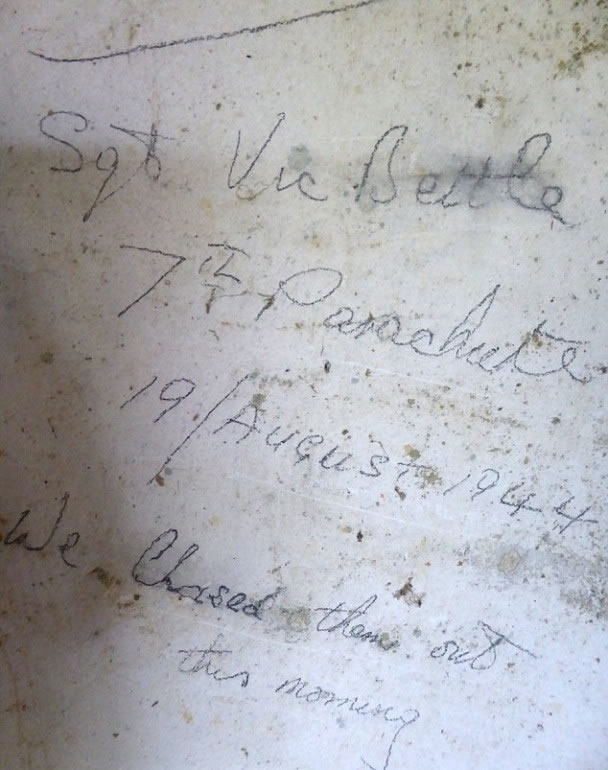 Sgt Vic Bettle
7th Parachute
19/August 1944
We Chased them out
this morning